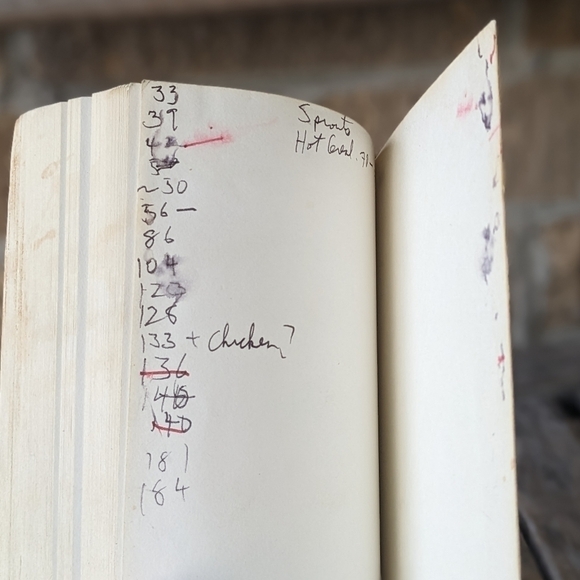 33
39
42
~30
56 —
86
104
120
126
133 + chicken?
136
140
181
184
Sprouts
Hot Cereal . 71 -